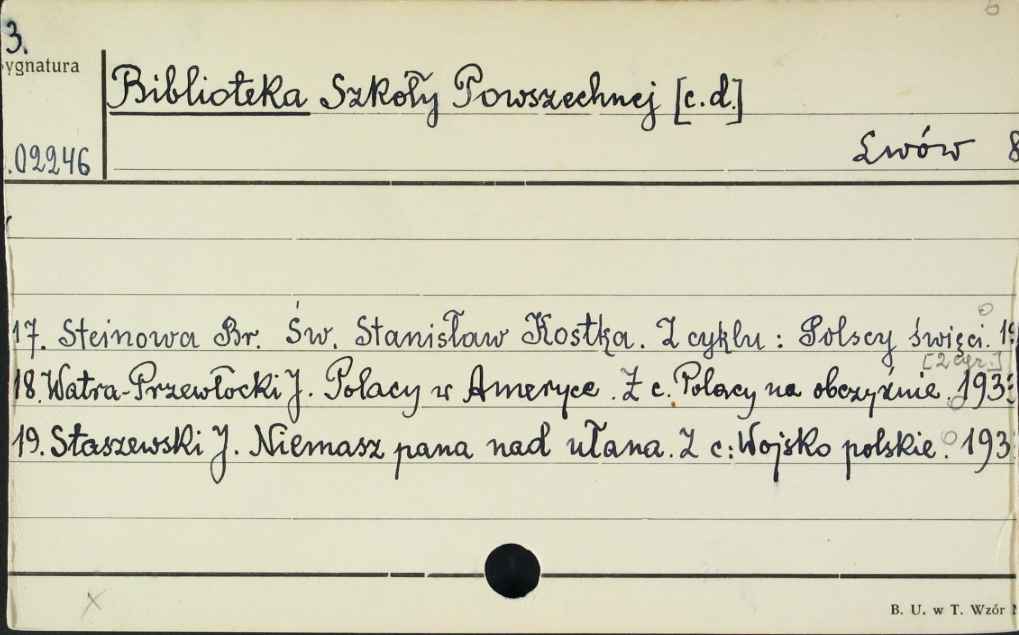 3.
ygnatura
Biblioteka Szkoły Powszechnej [c.d.]
.02246
Lwów 8
17. Steinowa Br. Św. Stanisław Kostka. Z cyklu: Polscy święci. 19
[2 egz.]
18. Watra-Przewłocki J. Polacy w Ameryce. Z c. Polacy na obczyźnie. 193
19. Staszewski J. Niemasz pana nad ułana. Z c: Wojsko polskie. 193
B. U. w T. Wzór